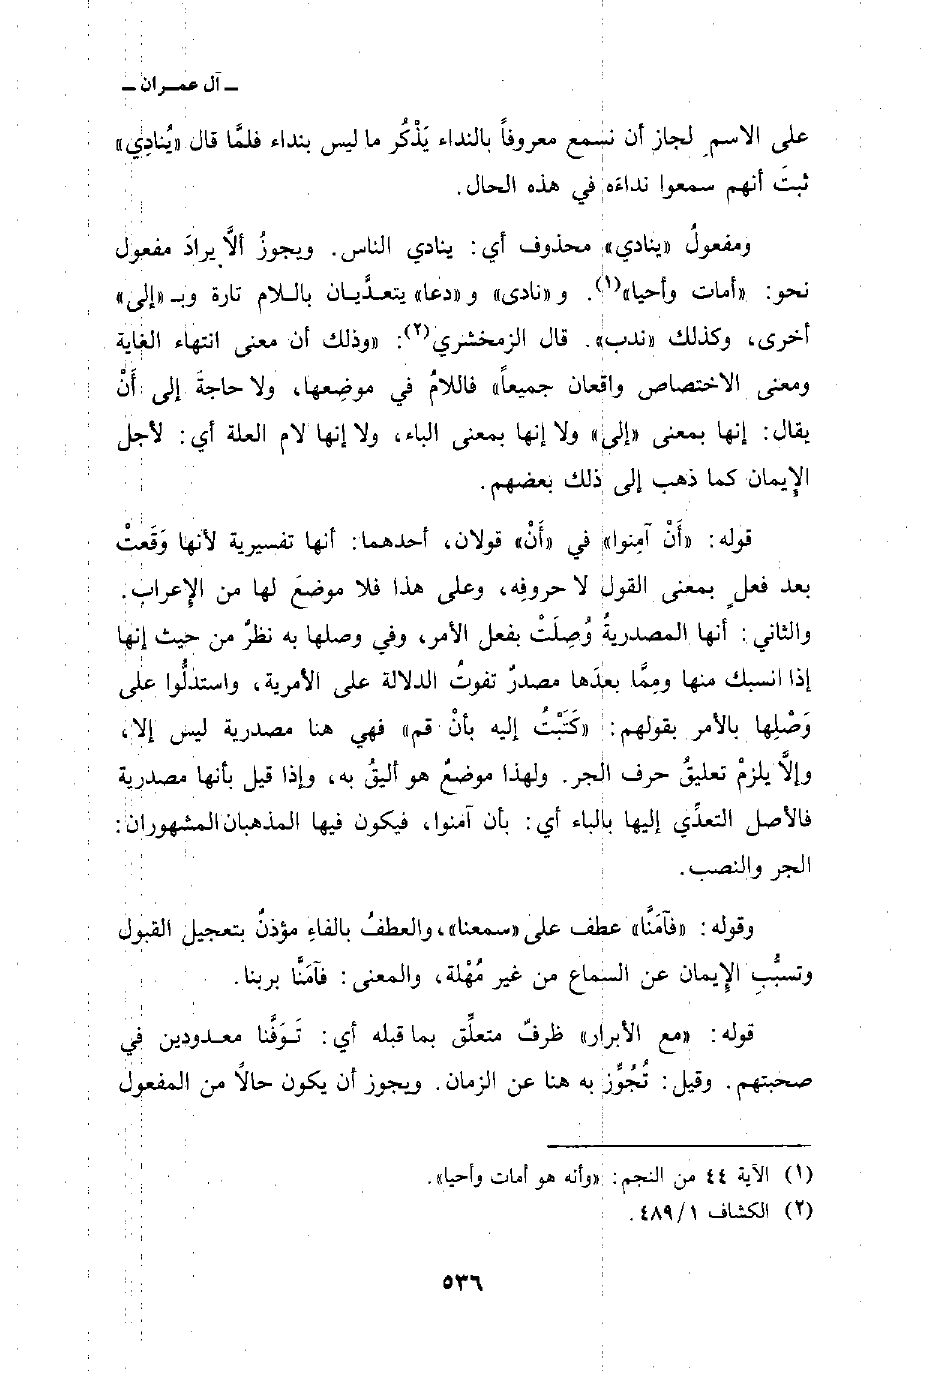 ـ آل عمـران ـ
على الاسم لجاز أن نسمع معروفاً بالنداء يَذْكُر ما ليس بنداء فلمَّا قال «يُنادِي»
ثبتَ أنهم سمعوا نداءَه في هذه الحال.
ومفعولُ «ينادي» محذوف أي: ينادي الناس. ويجوزُ ألاَّ يرادَ مفعول
نحو: «أمات وأحيا»(١). و «نادى» و «دعا» يتعدَّيـان باللام تارة وبـ «إلى»
أخرى، وكذلك «ندب». قال الزمخشري(٢): «وذلك أن معنى انتهاء الغاية
ومعنى الاختصاص واقعان جميعاً» فاللامُ في موضِعها، ولا حاجةَ إلى أَنْ
يقال: إنها بمعنى «إلى» ولا إنها بمعنى الباء، ولا إنها لام العلة أي: لأجل
الإِيمان كما ذهب إلى ذلك بعضهم.
قوله: «أَنْ آمِنوا» في «أَنْ» قولان، أحدهما: أنها تفسيرية لأنها وَقَعتْ
بعد فعلٍ بمعنى القول لا حروفِه، وعلى هذا فلا موضعَ لها من الإِعراب.
والثاني: أنها المصدريةُ وُصِلَتْ بفعل الأمر، وفي وصلها به نظرٌ من حيث إنها
إذا انسبك منها ومِمَّا بعدَها مصدرٌ تفوتُ الدلالة على الأمرية، واستدلُّوا على
وَصْلِها بالأمر بقولهم: «كَتَبْتُ إليه بأنْ قم» فهي هنا مصدرية ليس إلا،
وإلَّا يلزمْ تعليقُ حرف الجر. ولهذا موضعٌ هو أليقُ به، وإذا قيل بأنها مصدرية
فالأصل التعدِّي إليها بالباء أي: بأن آمنوا، فيكون فيها المذهبان المشهوران:
الجر والنصب.
وقوله: «فآمَنَّا» عطف على «سمعنا»، والعطفُ بالفاءِ مؤذنٌ بتعجيل القبول
وتسبُّبِ الإِيمان عن السماع من غير مُهْلة، والمعنى: فآمَنَّا بربنا.
قوله: «مع الأبرار» ظرفٌ متعلِّق بما قبله أي: تَـوَفَّنا معـدودين في
صحبتهم. وقيل: تُجُوِّز به هنا عن الزمان. ويجوز أن يكون حالاً من المفعول
(١) الآية ٤٤ من النجم: «وأنه هو أمات وأحيا».
(٢) الكشاف ١/٤٨٩.
٥٣٦